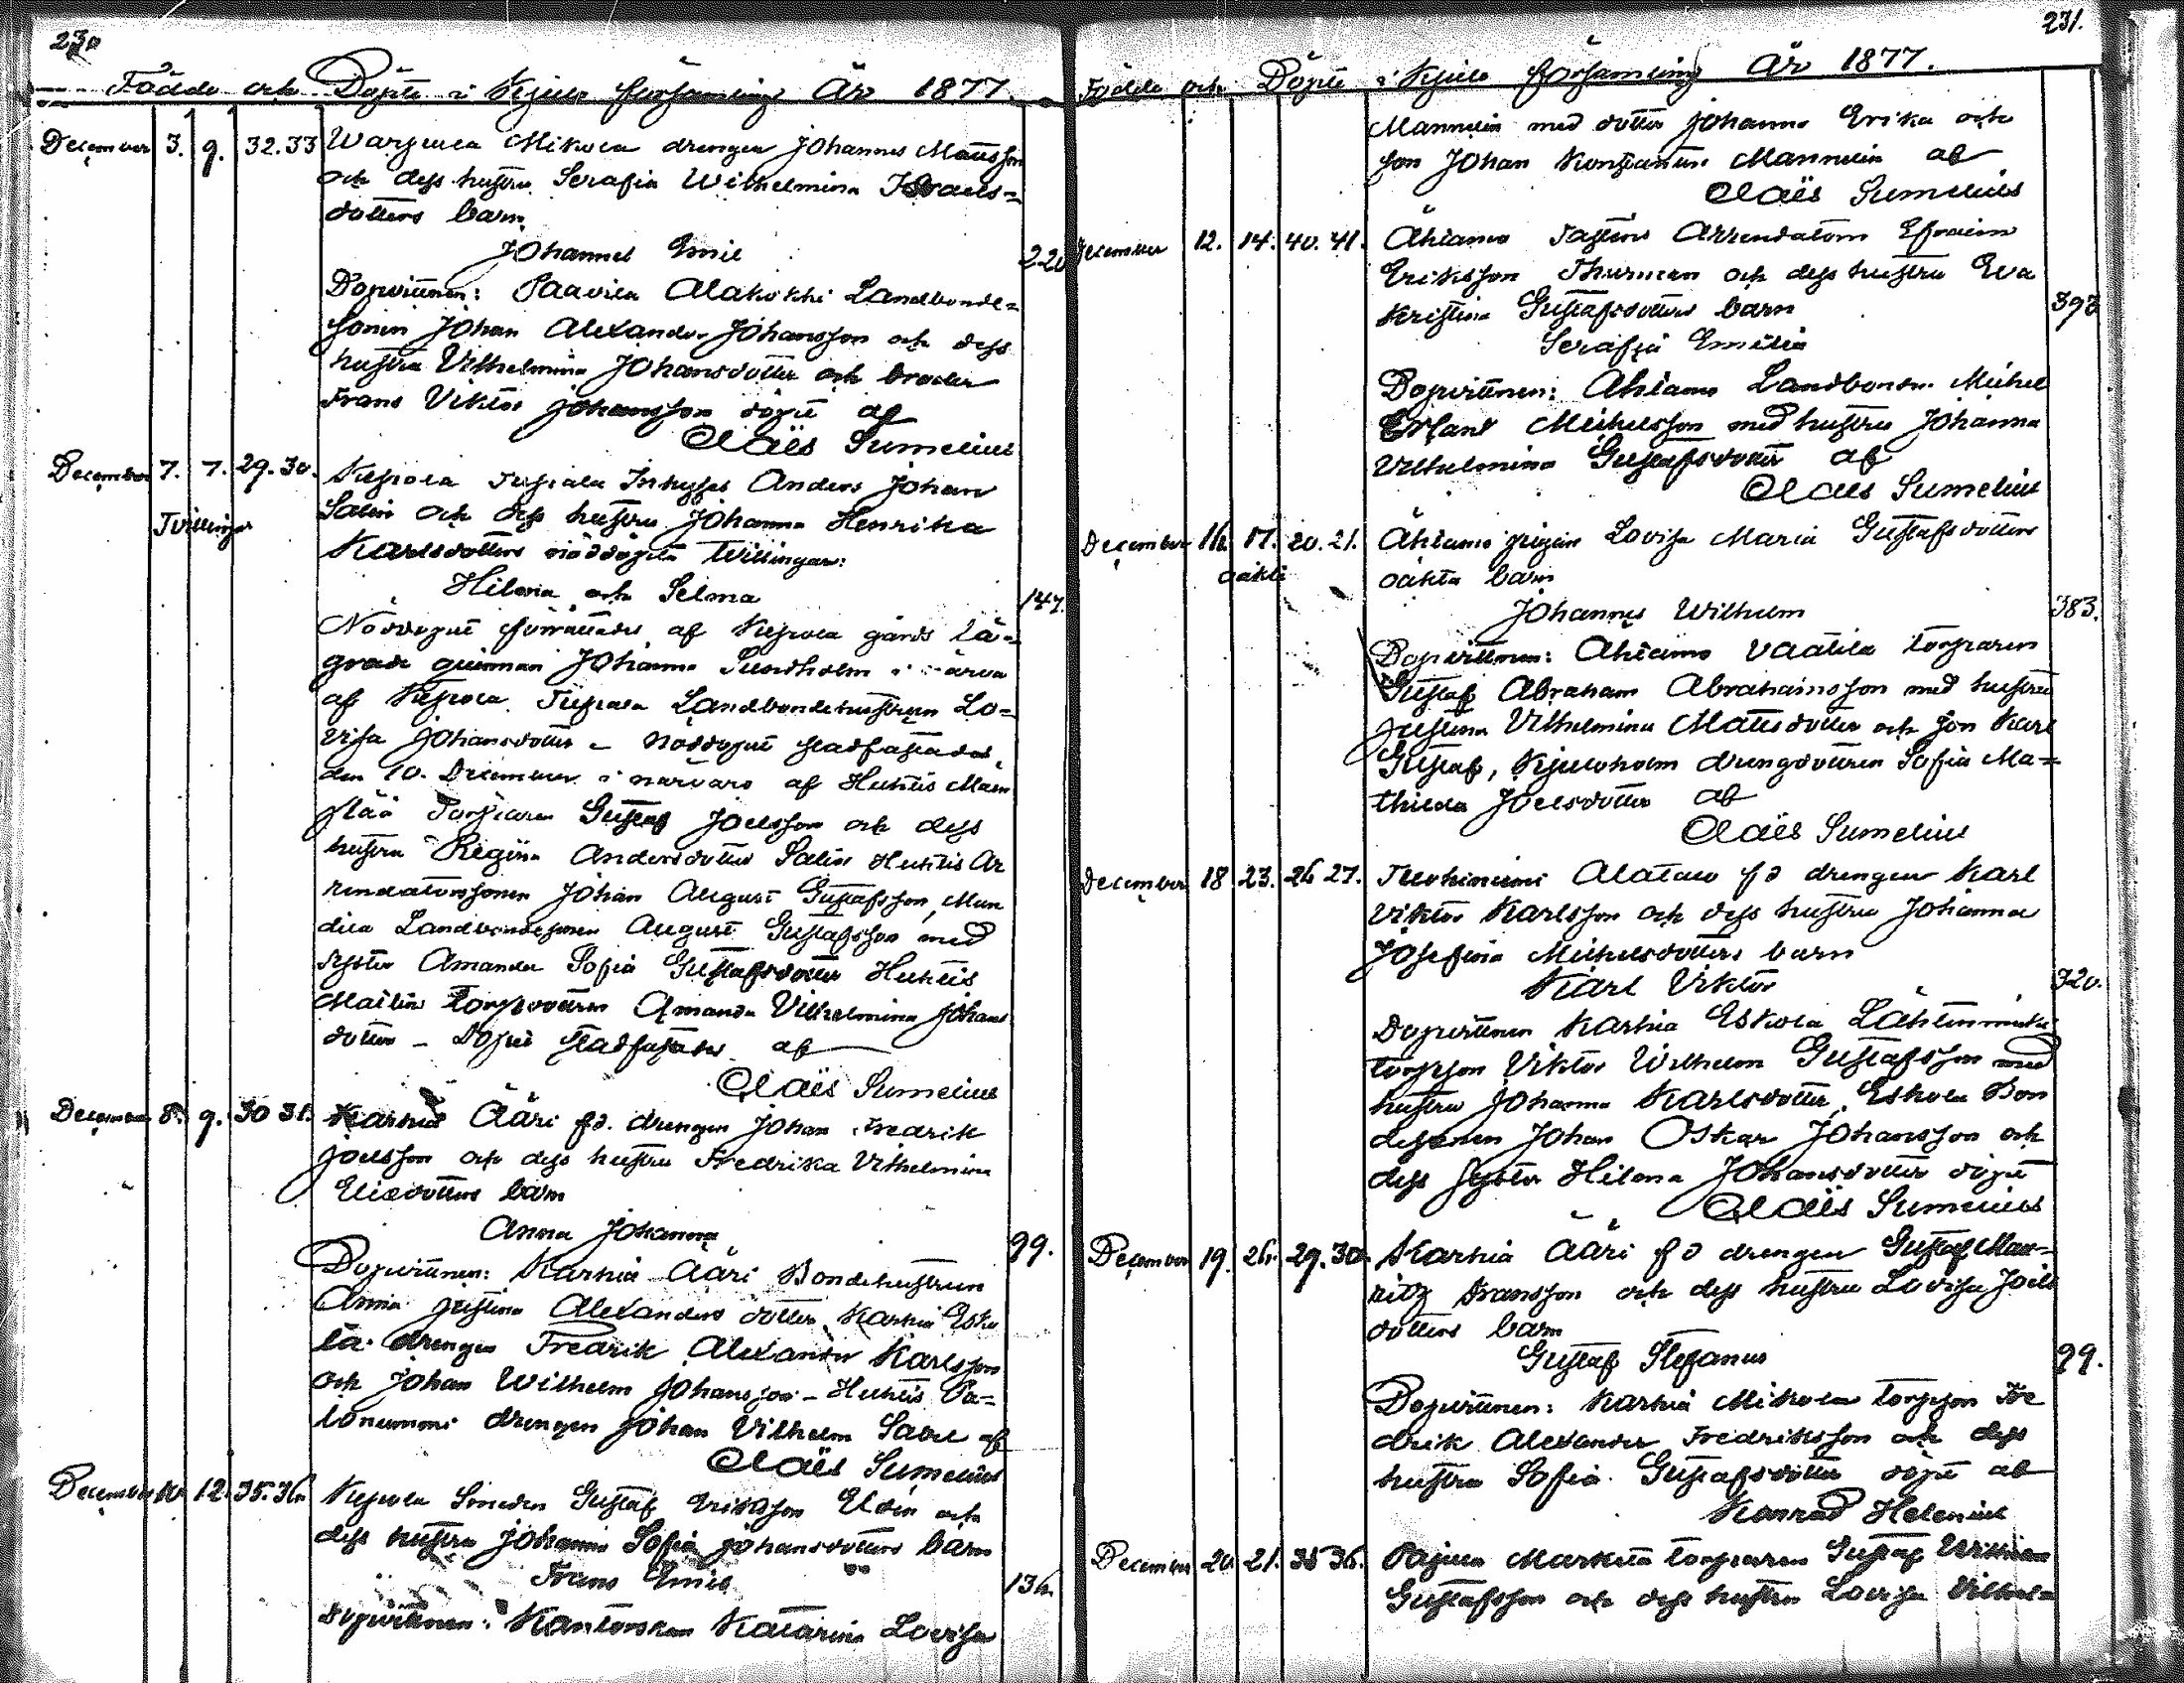 230
Födde och Döpte i Kjulo församling År 1877.
December 3. 9. 32.33 Mikola drengen Johannes Mattsson
och dess hustru Serafia Wilhelmina Israels=
dotters barn
Johannes Emil 220
Dopvittnen: Paavila Alakokki Landbonde=
sonen Johan Alexander Johansson och dess
hustru Vilhelmina Johansdotter och broder
Frans Viktor Johansson döpt af
Claës Sumelius
December 7. 7. 29.30. Kepola Inhyses Anders Johan
Tvillingar
Salin och dess hustru Johanna Henrika
Karlsdotters nöddöpta Tvillingar:
Hilma och Selma 147.
Nöddopet förrättades af Kepola gårds lä=
grade qvinnan Johanna Sundholm i närva
af Kepola Landbondehustrun Lo=
visa Johansdotter – Nöddopet stadfästades
den 10. December i närvaro af Huhtis
Torparen Gustaf Joelsson och dess
hustru Regina Andersdotter Salin Huhtis Ar
rendatorssonen Johan August Gustafsson,
Landbondesonen August Gustafsson med
syster Amanda Sofia Gustafsdotter Huhtis
torpdottren Amanda Vilhelmina Johans
dotter – Dopet stadfästades af
Claës Sumelius
December 8. 9. 30 31. Karhia Ääri fd. drengen Johan Fredrik
Joelsson och dess hustru Fredrika Vilhelmina
Eliædotters barn
Anna Johanna 99.
Dopvittnen: Karhia Ääri Bondehustrun
Anna Justina Alexanders dotter, Karhia Esko
la drengen Fredrik Alexander Karlsson
och Johan Wilhelm Johansson – Huhtis Pa=
loniemi drengen Johan Vilhelm af
Claës Sumelius
December 10. 12. 35.36. Kepola Smeden Gustaf Eriksson och
dess hustru Johanna Sofia Johansdotters barn
Frans Emil 136.
Dopvittnen: Kantorskan Katarina Lovisa
231.
Födde och Döpte i Kjulo församling År 1877.
Mannelin med dotter Johanna Erika och
son Johan Konstantin Mannelin af
Claës Sumelius
December 12. 14. 40. 41. Ahlamo Arrendatorn Efraim
Eriksson Thurman och dess hustru Eva
Kristina Gustafsdotters barn 393
Serafia Emilia
Dopvittnen: Ahlamo Landbonden Michel
Erland Michelsson med hustru Johanna
Vilhelmina Gustafsdotter af
Claës Sumelius
December 16. 17. 20. 21. Ahlamo pigan Lovisa Maria Gustafsdotters
oäkta
oäkta barn
Johannes Wilhelm 383.
Dopvittnen: Ahlamo Vaatila torparen
Gustaf Abraham Abrahamsson med hustru
Justina Vilhelmina Mattsdotter och son Karl
Gustaf, Kjuloholm drengdottren Sofia Ma=
thilda Joelsdotter af
Claës Sumelius
December 18 23. 26 27. Alatalo fd drengen Karl
Viktor Karlsson och dess hustru Johanna
Josefina Michelsdotters barn
Karl Viktor 320.
Dopvittnen Karhia Eskola
torpson Viktor Wilhelm Gustafsson med
hustru Johanna Karlsdotter, Eskola Bon
desonen Johan Oskar Johansson och
dess syster Hilma Johansdotter döpt
Claës Sumelius
December 19. 26. 29.30. Karhia Ääri fd drengen Gustaf Mau=
ritz Fransson och dess hustru Lovisa Joels
dotters barn
Gustaf Stefanus 99.
Dopvittnen: Karhia Mikola torpson Fre
drik Alexander Fredriksson och dess
hustru Sofia Gustafsdotter döpt af
Konrad Helenius
December 20. 21. 35 36. torparen Gustaf
Gustafsson och dess hustru Lovisa